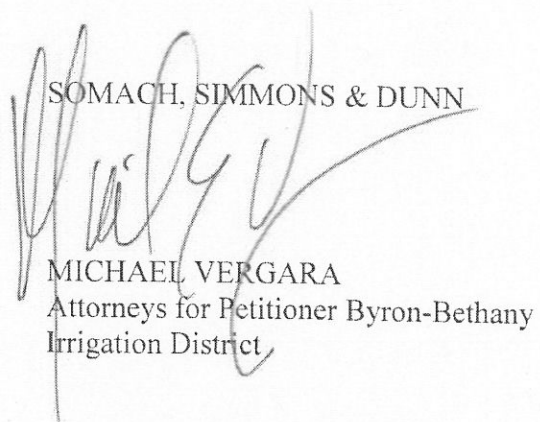 SOMACH, SIMMONS & DUNN
MICHAEL VERGARA
Attorneys for Petitioner Byron-Bethany
Irrigation District